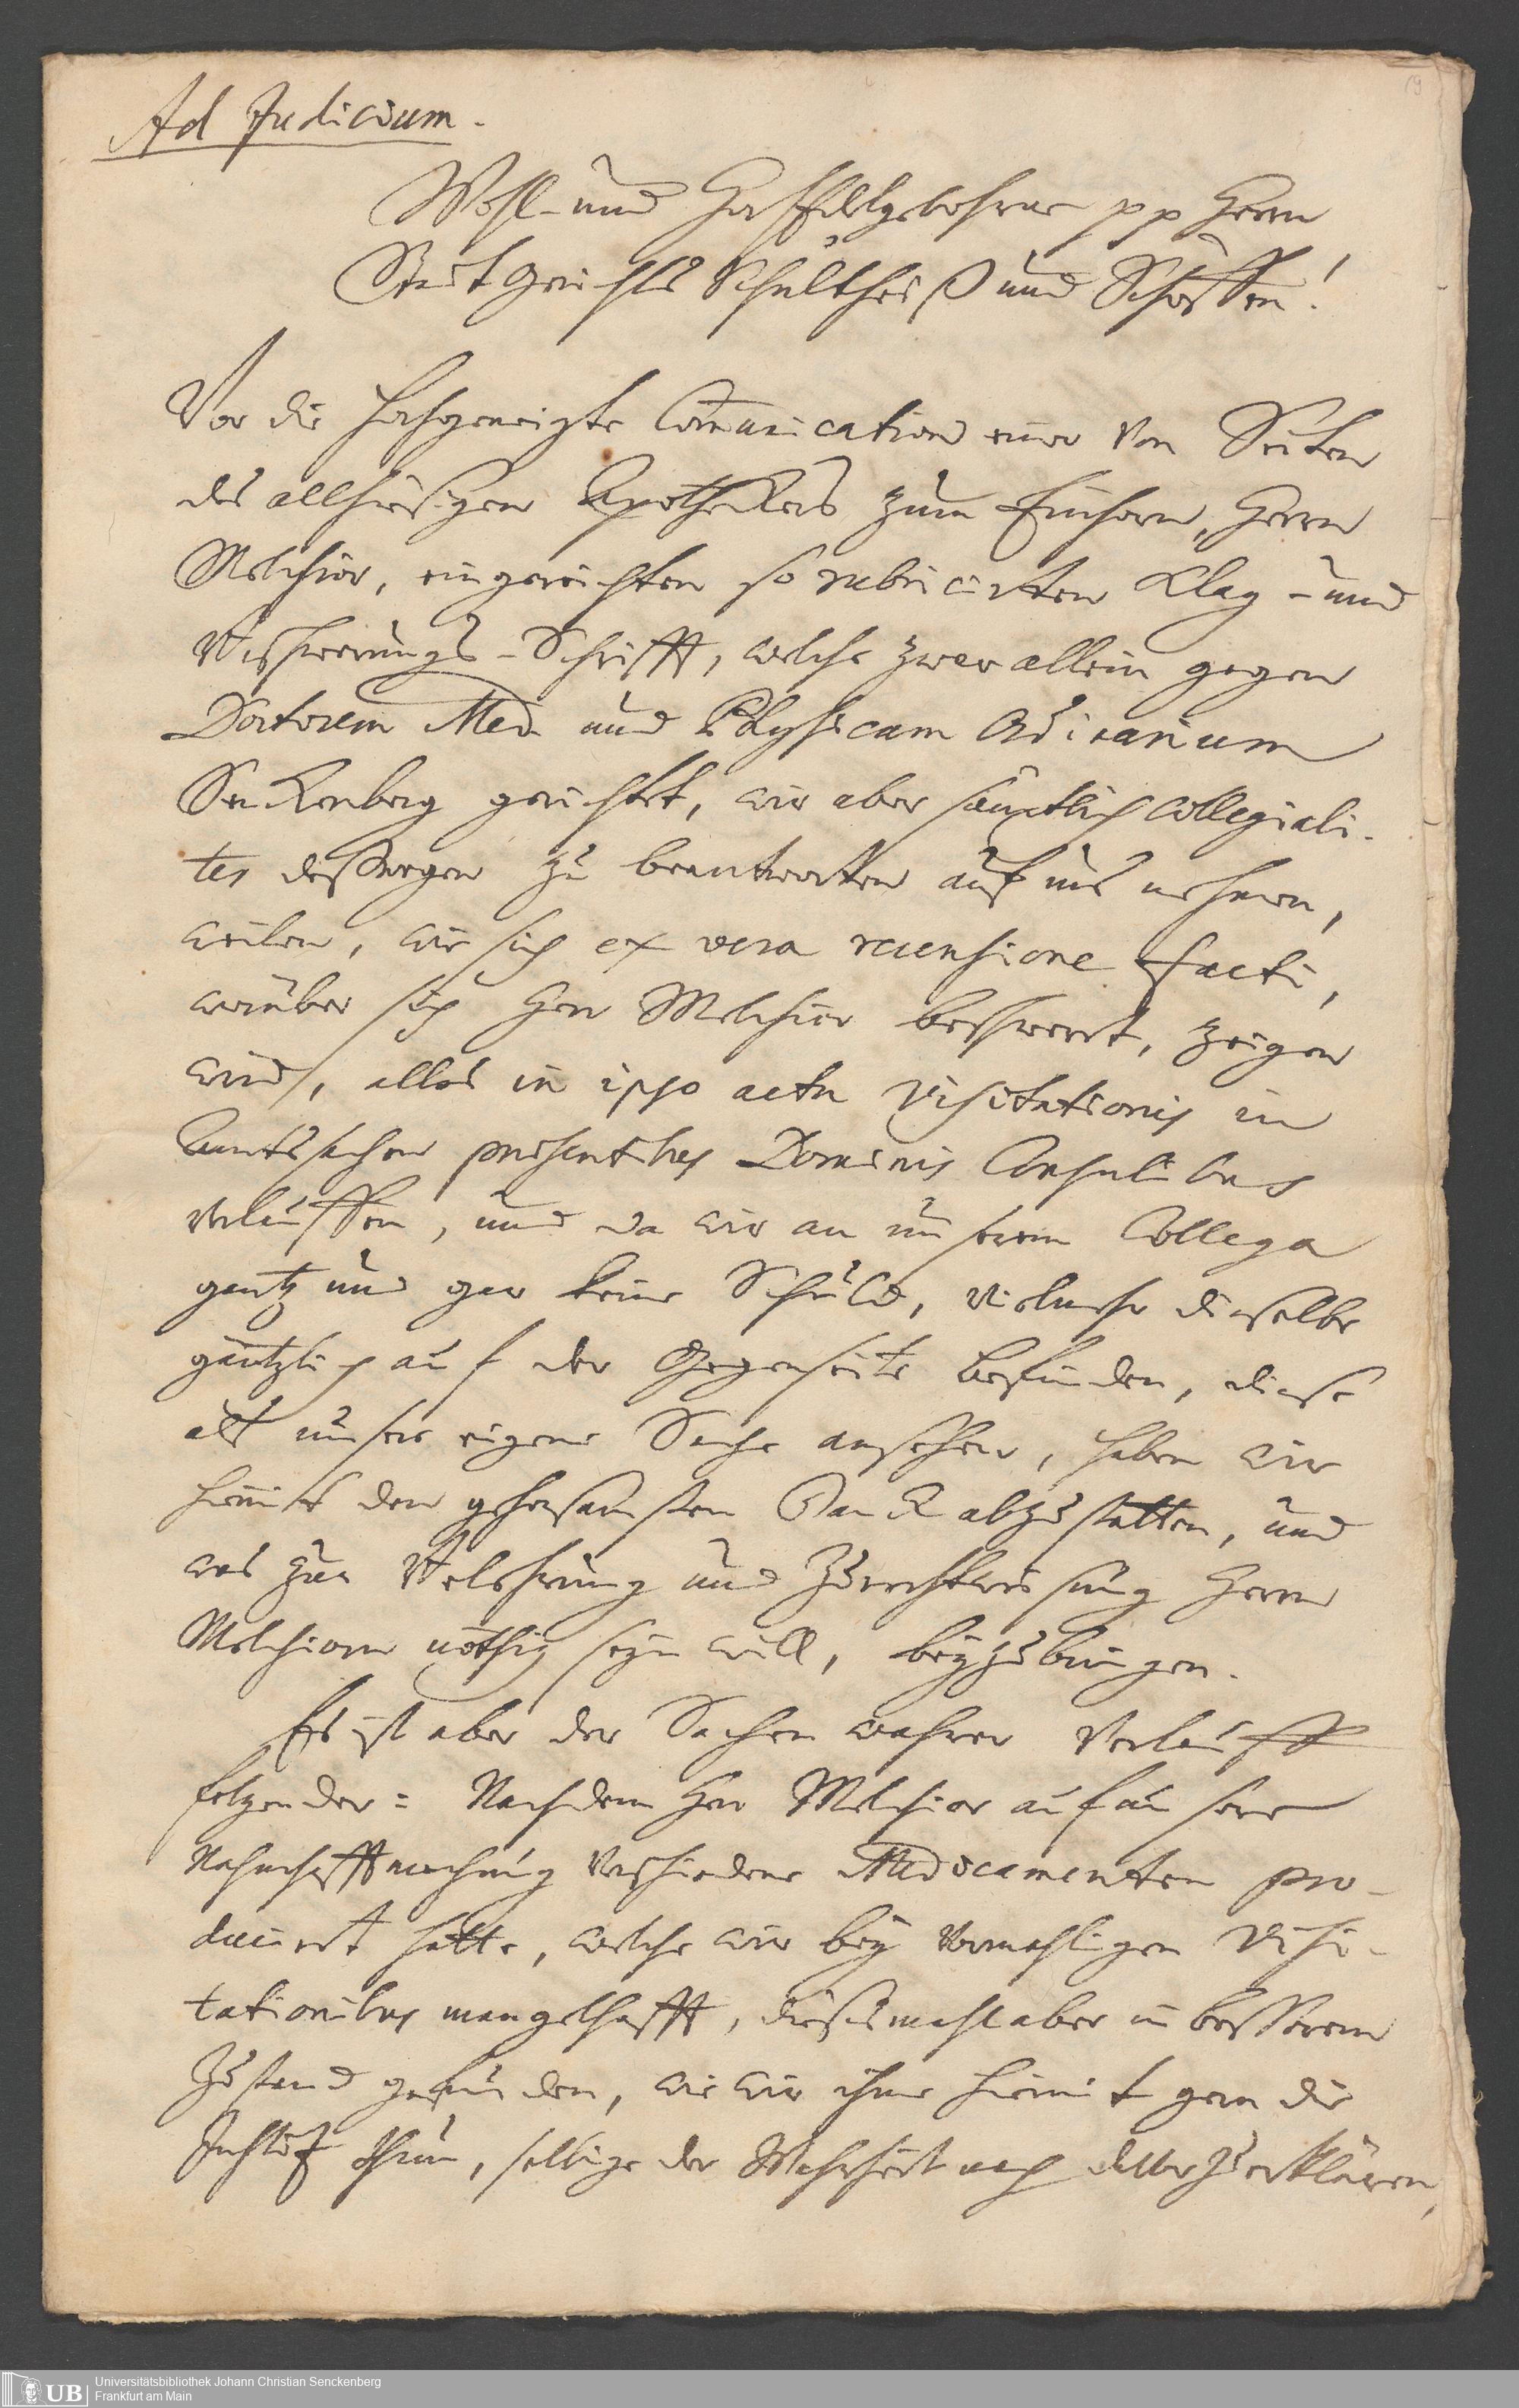 19
Ad Judicium.
Wohl- und HochEdelgebohrne pp Herrn
StattGerichts Schultheiß und Schöffen!
Vor die hochgeneigte Communication einer von Seiten
des allhiesigen Apothekers zum Einhorn, Herrn
Melchior, eingereichten so rubricirten Klag- und
Beschwerungs-Schrifft, welche zwar allein gegen
Doctorem Med. und Physicum Ordinarium
Senckenberg gerichtet, wir aber sämtlich collegiali-
ter deßwegen zu beantworten auf uns nehmen,
weilen, wie sich ex vera recensione facti,
worüber sich Herr Melchior beschwert, zeigen
wird, alles in ipso actu visitationis in
Amtssachen praesentibus Dominis Consulibus
verlauffen, und da wir an unserem Collega
gantz und gar keine Schuld, vielmehr dieselbe
gäntzlich auf der Gegenseite befinden, diese
als unsere eigene Sache ansehen, haben wir
hiemit den gehorsamsten Danck abzustatten, und
was zur Belehrung und Zurechtweisung Herrn
Melchiorn nöthig seyn will, beyzubringen.
Es ist aber der Sachen wahrer Verlauff
folgender: Nachdem Herr Melchior auf unsere
Nahmhafftmachung verschiedene Medicamenten pro-
ducirt hatte, welche wir bey vormahligen Visi-
tationibus mangelhafft, diesesmahl aber in besserem
Zustand gefunden, wie wir ihme hiemit gern die
Justiz thun, selbige der Wahrheit nach davor zu erklären,
UB
Universitätsbibliothek Johann Christian Senckenberg
Frankfurt am Main